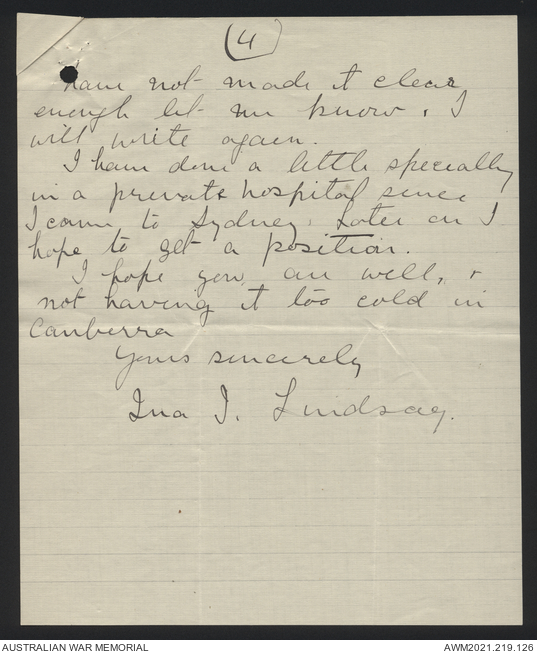 (4)
have not made it clear
enough let me know, I
will write again.
I have done a little specially
in a private hospital since
I came to Sydney. Later on I
hope to get a position.
I hope you are well, +
not having it too cold in
Canberra
Yours sincerely
Ina I. Lindsay.
AUSTRALIAN WAR MEMORIAL
AWM2021.219.126